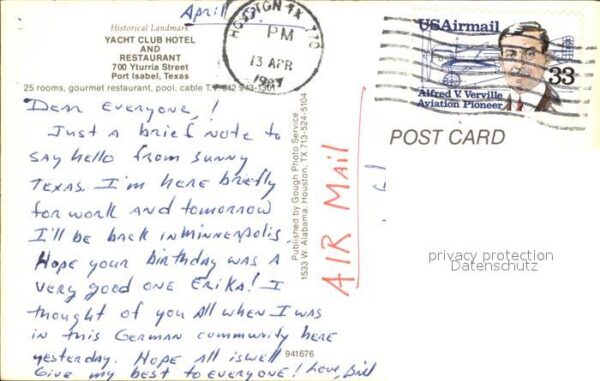 April
Historical Landmark
YACHT CLUB HOTEL
AND
RESTAURANT
700 Yturria Street
Port Isabel, Texas
25 rooms, gourmet restaurant, pool, cable T.V. 512 943-1301
Dear Everyone!
Just a brief note to
say hello from sunny
Texas. I'm here briefly
for work and tomorrow
I'll be back in Minneapolis
Hope your birthday was a
very good one Erika! I
thought of you all when I was
in this German community here
yesterday. Hope all is well
Give my best to everyone! Love, Bill
941676
Published by Gough Photo Service
1533 W. Alabama, Houston, TX 713-524-5104
AIR MAIL
HOUSTON TX 770
PM
13 APR
1987
USAirmail
33
Alfred V. Verville
Aviation Pioneer
POST CARD
privacy protection
Datenschutz